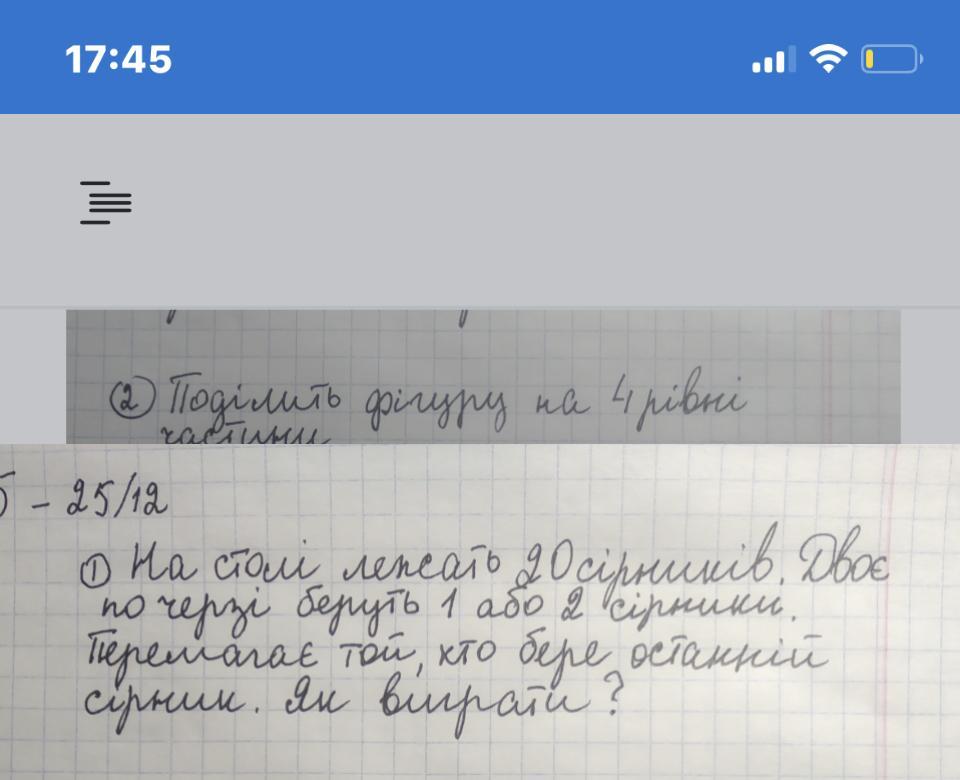 17:45
② Поділить фігуру на 4 рівні
частини
б - 25/12
① На столі лежать 20 сірників. Двоє
по черзі беруть 1 або 2 сірники.
Перемагає той, хто бере останній
сірник. Як виграти?